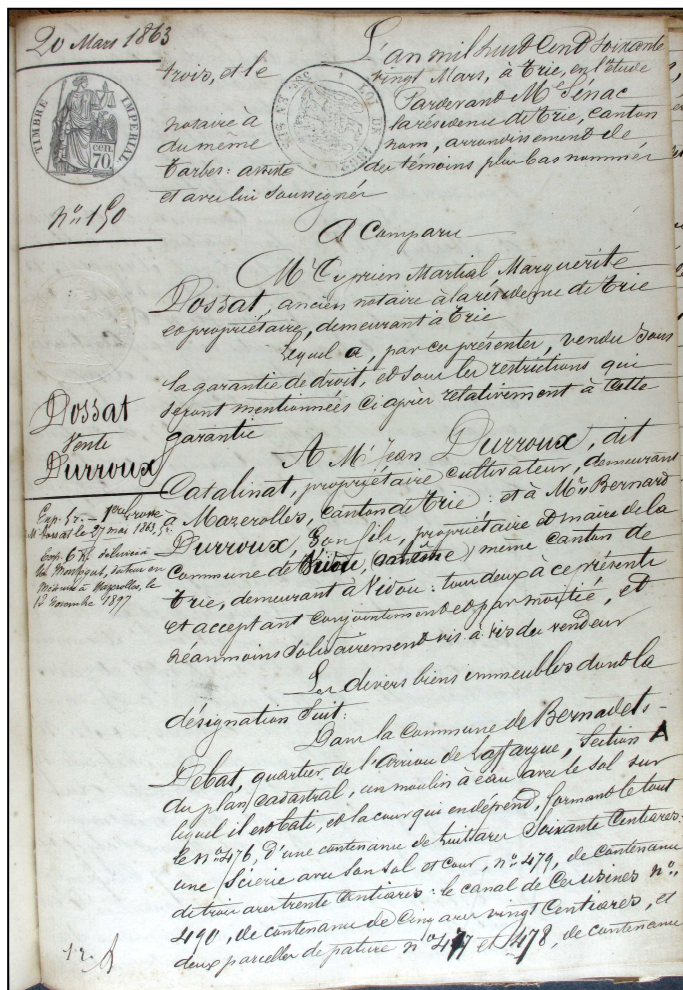 20 Mars 1863
TIMBRE IMPERIAL
70 cen.
n° 150
L'an mil huit Cent Soixante
trois, et le vingt Mars, à Trie, en l'étude
Pardevant Me Senac
notaire à la résidence de Trie, canton
du même nom, arrondissement de
Tarbes: assisté des témoins plus bas nommés
et avec lui soussignés
A Comparu
Mr Cyprien Martial Marguerite
Dossat, ancien notaire à la résidence de Trie
et propriétaire, demeurant à Trie
Lequel a, par ces présentes, vendu sous
la garantie de droit, et sous les restrictions qui
seront mentionnées ci après relativement à cette
garantie
Dossat
Vente
Durroux
A Mr Jean Durroux, dit
Catalinat, propriétaire cultivateur, demeurant
à Mazerolles, canton de Trie: et à Mr Bernard
Durroux, son fils, propriétaire et maire de la
Commune de Vidou, même canton de
Trie, demeurant à Vidou: tous deux à ce présents
et acceptant conjointement et par moitié, et
néanmoins solidairement vis à vis du vendeur
Mr Dossat le 27 mai 1863
à Mazerolles, le
novembre 1897
Les divers biens immeubles dont la
désignation suit:
Dans la Commune de Bernadets-
Debat, quartier de l'arriou de Laffargue, Section A
du plan cadastral, un moulin à eau avec le sol sur
lequel il est bati, et la cour qui en dépend, formant le tout
le n° 476, d'une contenance de huit ares Soixante Centiares:
une Scierie avec son sol et cour, n° 479, de contenance
de trois ares trente Centiares: le canal de ces usines n°
490, de contenance de Cinq ares vingt Centiares, et
deux parcelles de pature nos 477 et 478, de contenance